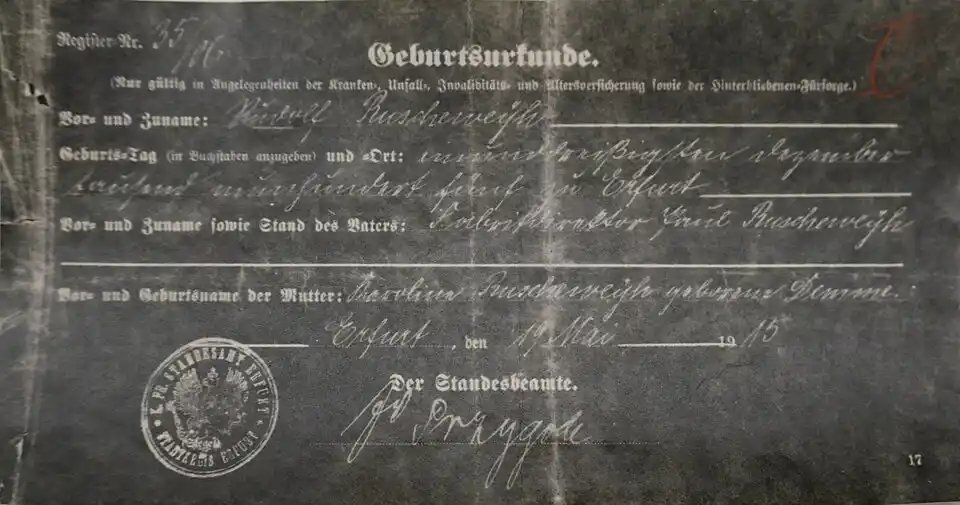 Register-Nr. 35/06
Geburtsurkunde.
(Nur gültig in Angelegenheiten der Kranken-, Unfall-, Invaliditäts- und Altersversicherung sowie der Hinterbliebenen-Fürsorge.)
Vor- und Zuname: Rudolf Ruscheweyh
Geburts-Tag (in Buchstaben anzugeben) und -Ort: einunddreißigsten Dezember
tausend neunhundert fünf zu Erfurt
Vor- und Zuname sowie Stand des Vaters: Fabrikdirektor Paul Ruscheweyh
Vor- und Geburtsname der Mutter: Karoline Ruscheweyh geborene Demme.
Erfurt, den 19 Mai 1915
K. PR. STANDESAMT ERFURT
STADTKREIS ERFURT
Siegel
Der Standesbeamte.
17